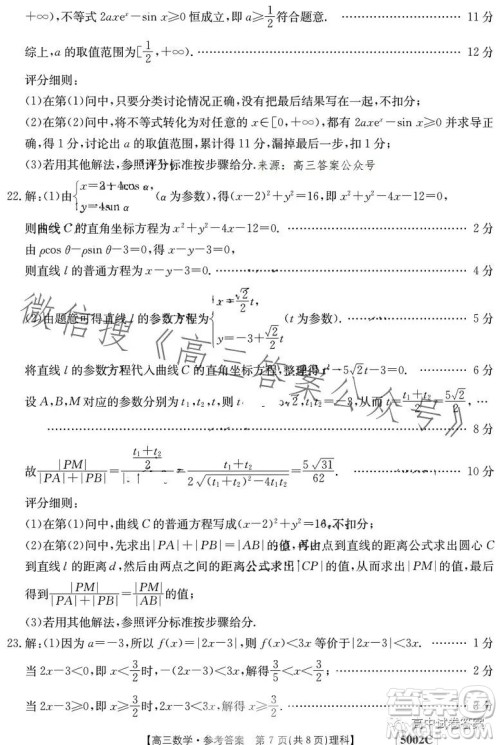 ,+∞),不等式 2axeˣ-sin x≥0 恒成立,即 a≥1/2 符合题意. 11 分
综上,a 的取值范围为[1/2,+∞). 12 分
评分细则:
(1)在第(1)问中,只要分类讨论情况正确,没有最后的总结写在一起,不扣分;
(2)在第(2)问中,若将不等式转化为对任意的 x∈[0,+∞),都有 2axeˣ-sin x≥0 并求导正
确,得 1 分,计算出 a 的取值范围,累计得 11 分,漏写综上所述,扣 1 分;
(3)若用其他解法,参照评分标准按步骤给分.来源:高三答案公众号
22.解:(1)由{x=2+4cos α,
y=4sin α (α 为参数),得(x-2)²+y²=16,即 x²+y²-4x-12=0,
则曲线 C 的直角坐标方程为 x²+y²-4x-12=0. 2 分
由 ρcos θ-ρsin θ-3=0,得 x-y-3=0,
则直线 l 的普通方程为 x-y-3=0. 4 分
(2)由题意可得直线 l 的参数方程为{x=√2/2 t,
y=-3+√2/2 t (t 为参数). 5 分
将直线 l 的参数方程代入曲线 C 的直角坐标方程,整理得 t²-5√2t-3=0. 6 分
设 A,B,M 对应的参数分别为 t₁,t₂,t,则 t₁+t₂=5√2,t₁t₂=-3,从而 t=(t₁+t₂)/2=5√2/2,
8 分
故 |PM|/(|PA|+|PB|)=((t₁+t₂)/2)/ =(t₁+t₂)/(2√((t₁+t₂)²-4t₁t₂))=5√31/62. 10 分
评分细则:
(1)在第(1)问中,曲线 C 的普通方程写成(x-2)²+y²=16,不扣分;
(2)在第(2)问中,先求出|PA|+|PB|=|AB|的值,再由点到直线的距离公式求出圆心 C
到直线 l 的距离 d,然后由两点之间的距离公式求出|CP|的值,从而求出|PM|的值,最后
得到 |PM|/(|PA|+|PB|)=|PM|/|AB|的值;
(3)若用其他解法,参照评分标准按步骤给分.
23.解:(1)因为 a=-3,所以 f(x)=|2x-3|,则 f(x)<3x 等价于|2x-3|<3x. 1 分
当 2x-3<0,即 x<3/2时,-(2x-3)<3x,解得 3/5<x<3/2; 2 分
当 2x-3≥0,即 x≥3/2时,2x-3<3x,解得 x≥3/2.
【高三数学·参考答案 第 7 页(共 8 页)理科】
5002C
微信搜《高三答案公众号》
高中试卷答案